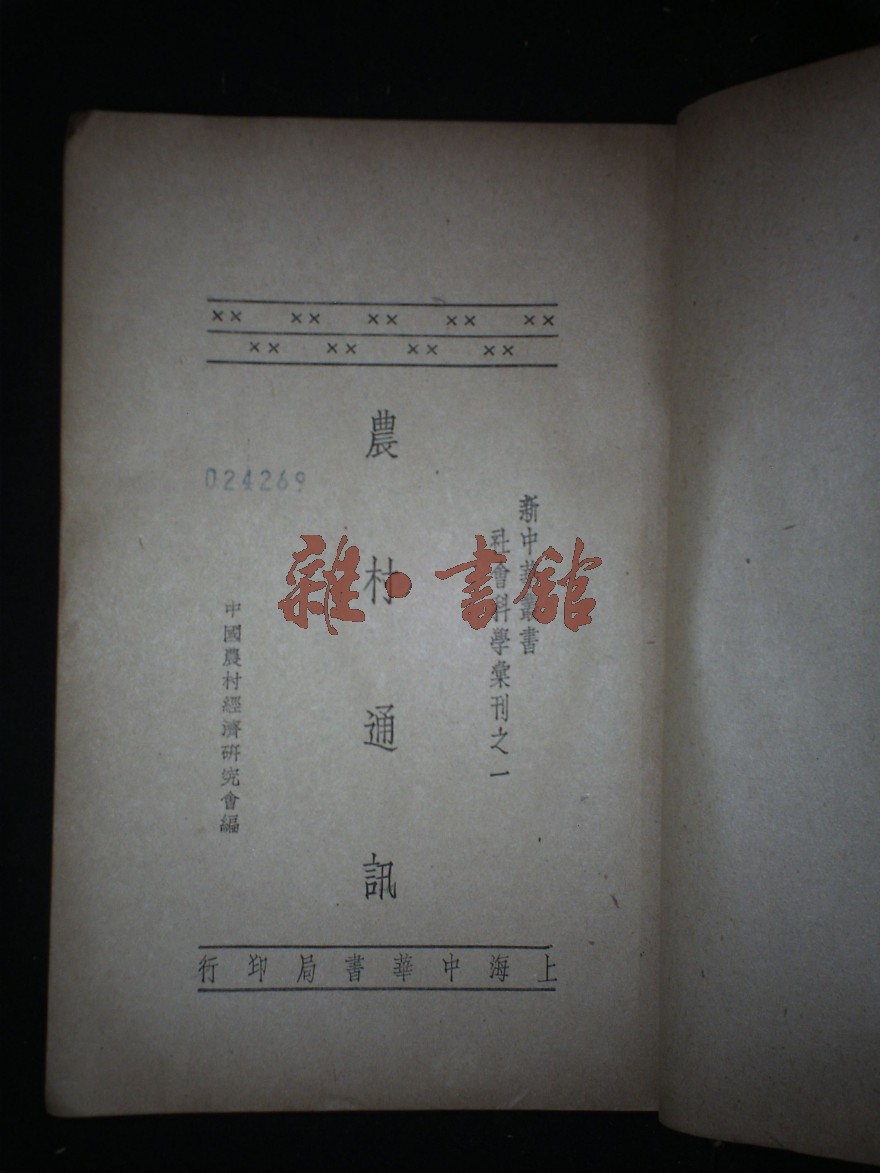 新中華叢書
社會科學彙刊之一
農村通訊
024269
中國農村經濟研究會編
上海中華書局印行
雜·書館